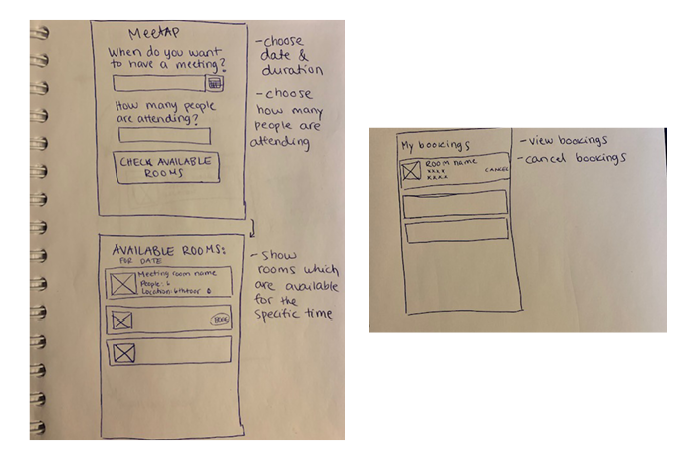 MeetAP
When do you want
to have a meeting?
How many people
are attending?
CHECK AVAILABLE
ROOMS
- choose
date &
duration
- choose
how many
people are
attending
AVAILABLE ROOMS:
FOR DATE
Meeting room name
People: 6
Location: 6th floor
BOOK
- Show
rooms which
are available
for the
specific time
My bookings
ROOM name
xxxx
xxxx
CANCEL
- view bookings
- cancel bookings